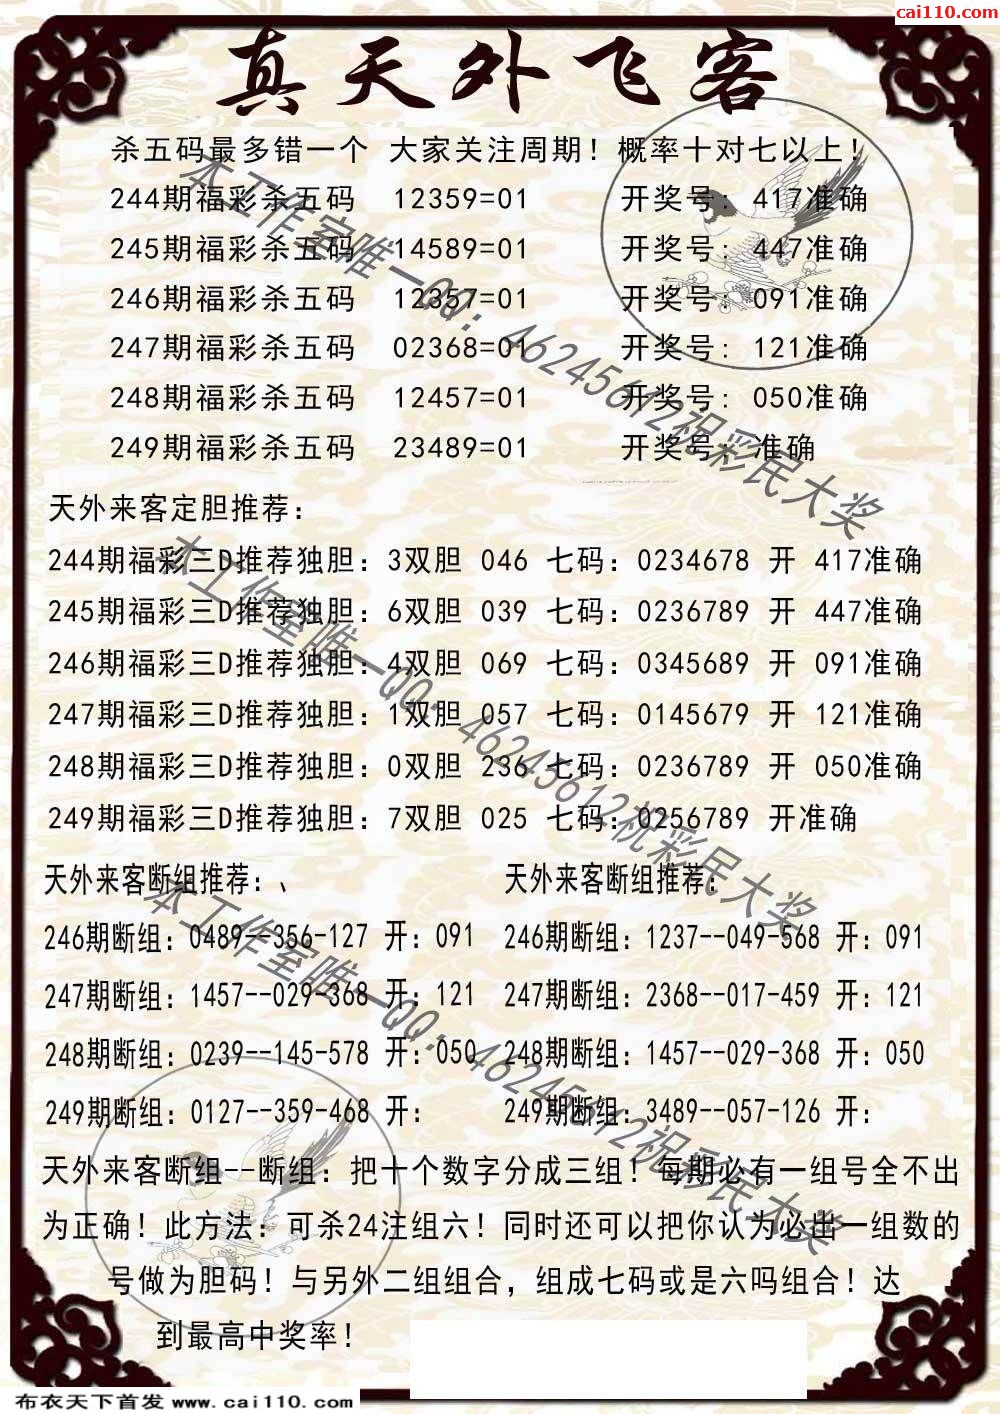 cai110.com
真天外飞客
杀五码最多错一个 大家关注周期！概率十对七以上！
244期福彩杀五码 12359=01 开奖号: 417准确
245期福彩杀五码 14589=01 开奖号: 447准确
246期福彩杀五码 12357=01 开奖号: 091准确
247期福彩杀五码 02368=01 开奖号: 121准确
248期福彩杀五码 12457=01 开奖号: 050准确
249期福彩杀五码 23489=01 开奖号: 准确
本工作室唯一QQ：46245612祝彩民大奖
天外来客定胆推荐：
244期福彩三D推荐独胆：3双胆 046 七码：0234678 开 417准确
245期福彩三D推荐独胆：6双胆 039 七码：0236789 开 447准确
246期福彩三D推荐独胆：4双胆 069 七码：0345689 开 091准确
247期福彩三D推荐独胆：1双胆 057 七码：0145679 开 121准确
248期福彩三D推荐独胆：0双胆 236 七码：0236789 开 050准确
249期福彩三D推荐独胆：7双胆 025 七码：0256789 开准确
本工作室唯一QQ：46245612祝彩民大奖
天外来客断组推荐：、 天外来客断组推荐：
246期断组：0489--356-127 开：091 246期断组：1237--049-568 开：091
247期断组：1457--029-368 开：121 247期断组：2368--017-459 开：121
248期断组：0239--145-578 开：050 248期断组：1457--029-368 开：050
249期断组：0127--359-468 开： 249期断组：3489--057-126 开：
本工作室唯一QQ：46245612祝彩民大奖
天外来客断组--断组：把十个数字分成三组！每期必有一组号全不出
为正确！此方法：可杀24注组六！同时还可以把你认为必出一组数的
号做为胆码！与另外二组组合，组成七码或是六吗组合！达
到最高中奖率！
布衣天下首发 www.cai110.com